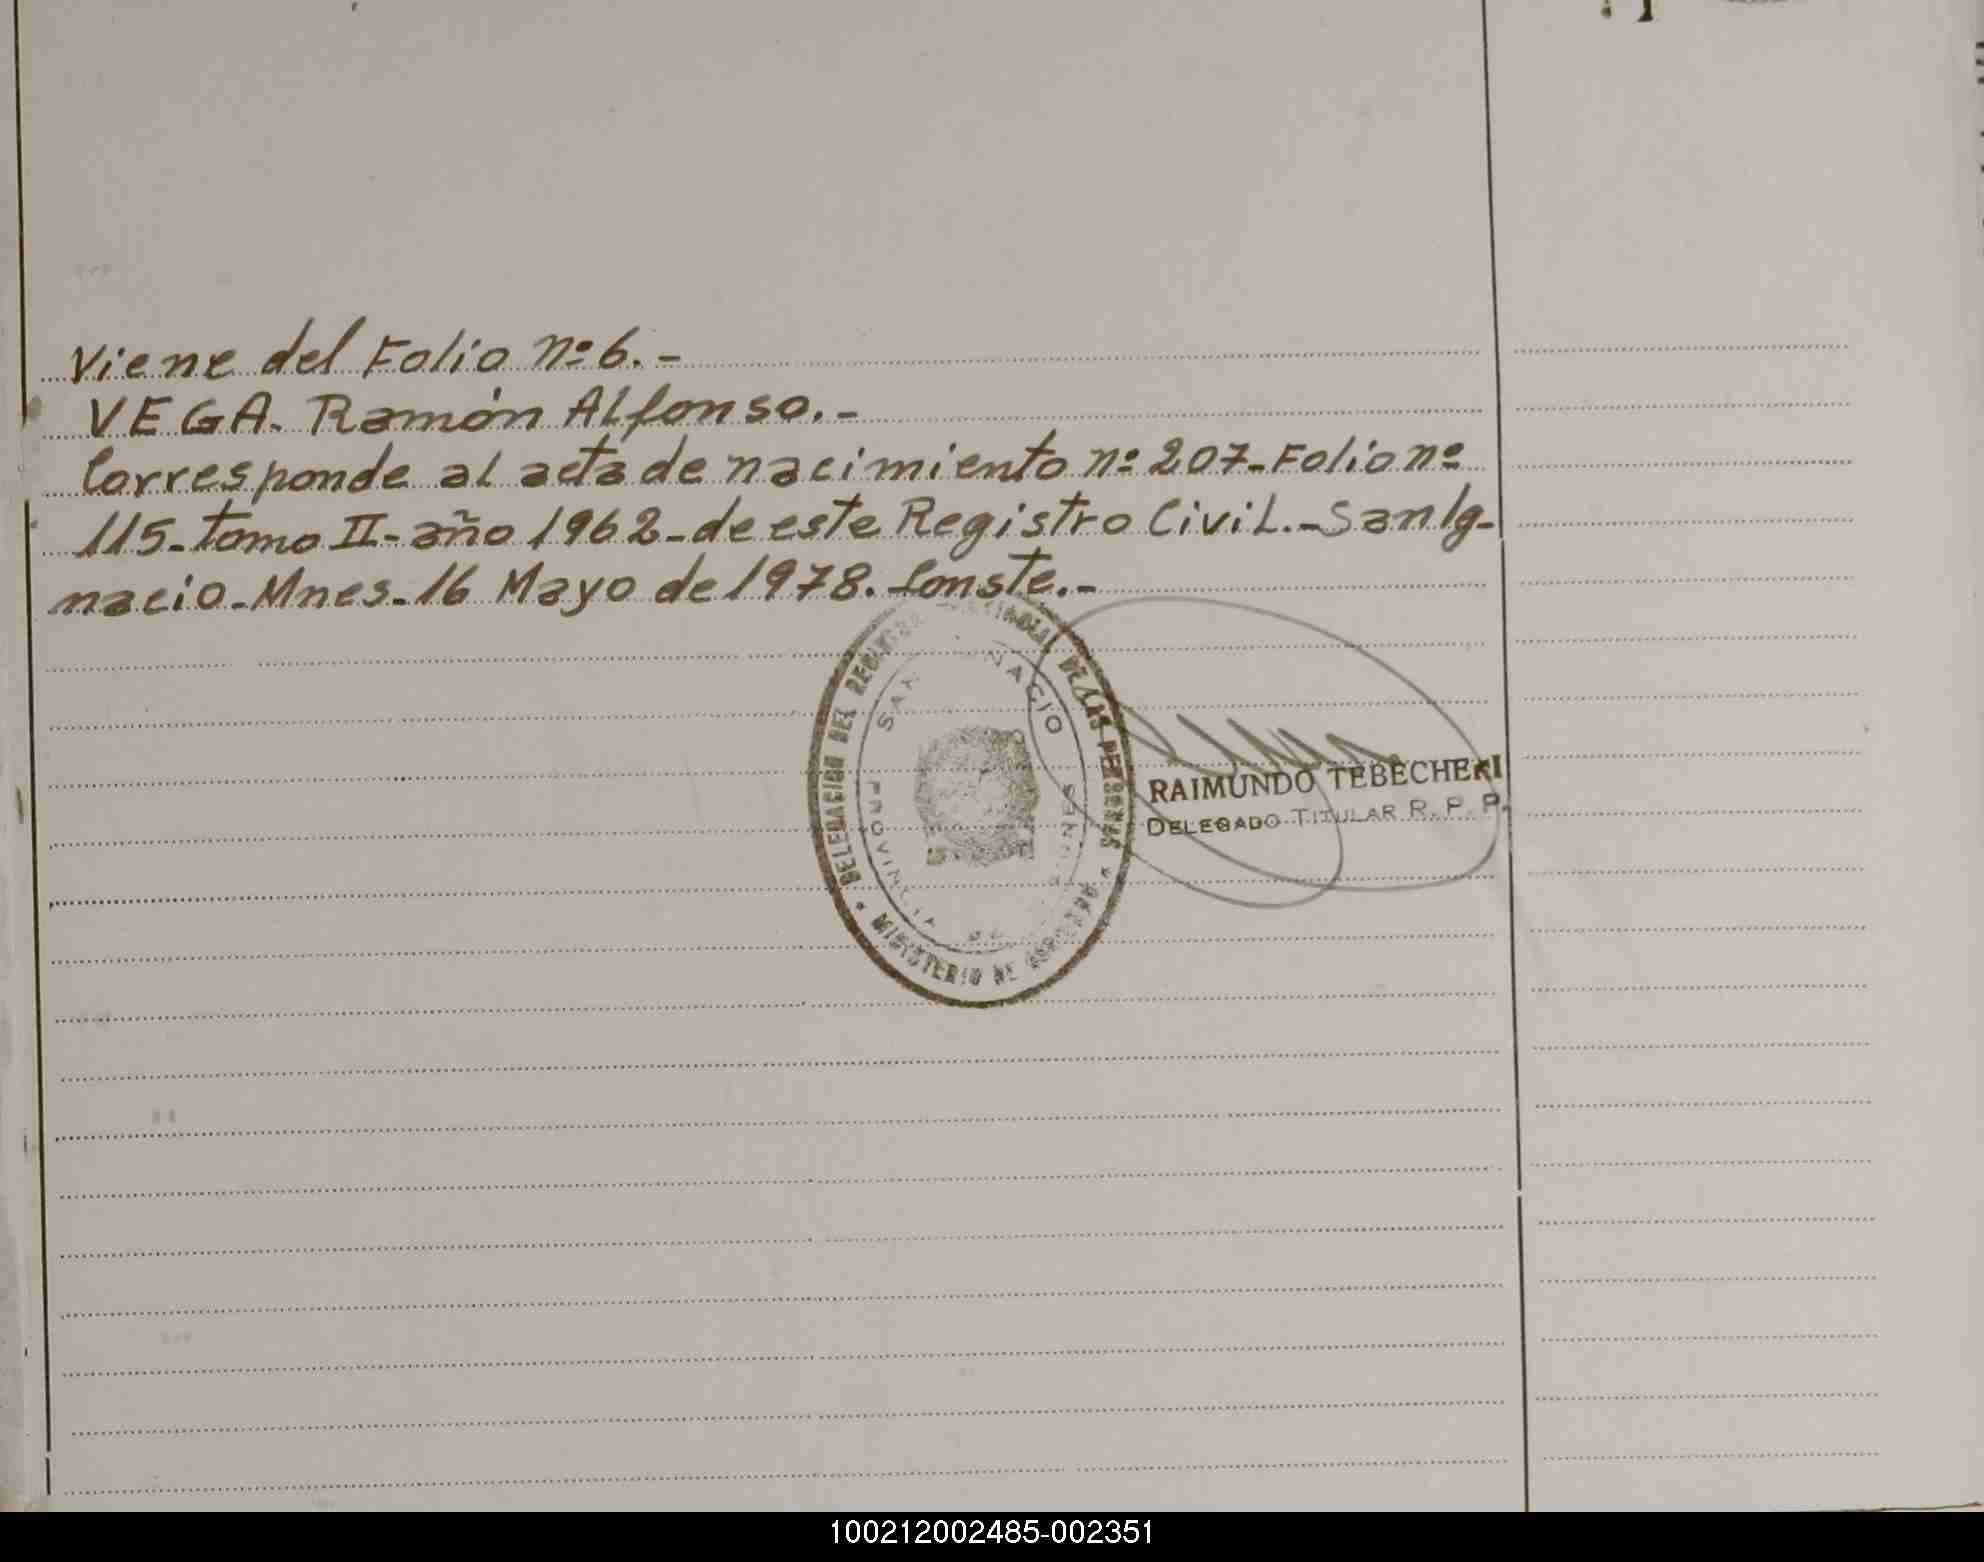 Viene del Folio nº 6.-
VEGA. Ramón Alfonso.-
Corresponde al acta de nacimiento nº 207- Folio nº
115- tomo II- año 1962- de este Registro Civil.- San Ig-
nacio- Mnes- 16 Mayo de 1978. Conste.-
DELEGACION DEL REGISTRO PROVINCIAL DE LAS PERSONAS
SAN IGNACIO
PROVINCIA DE MISIONES
* MINISTERIO DE GOBIERNO *
RAIMUNDO TEBECHERI
DELEGADO TITULAR R. P. P.
100212002485-002351